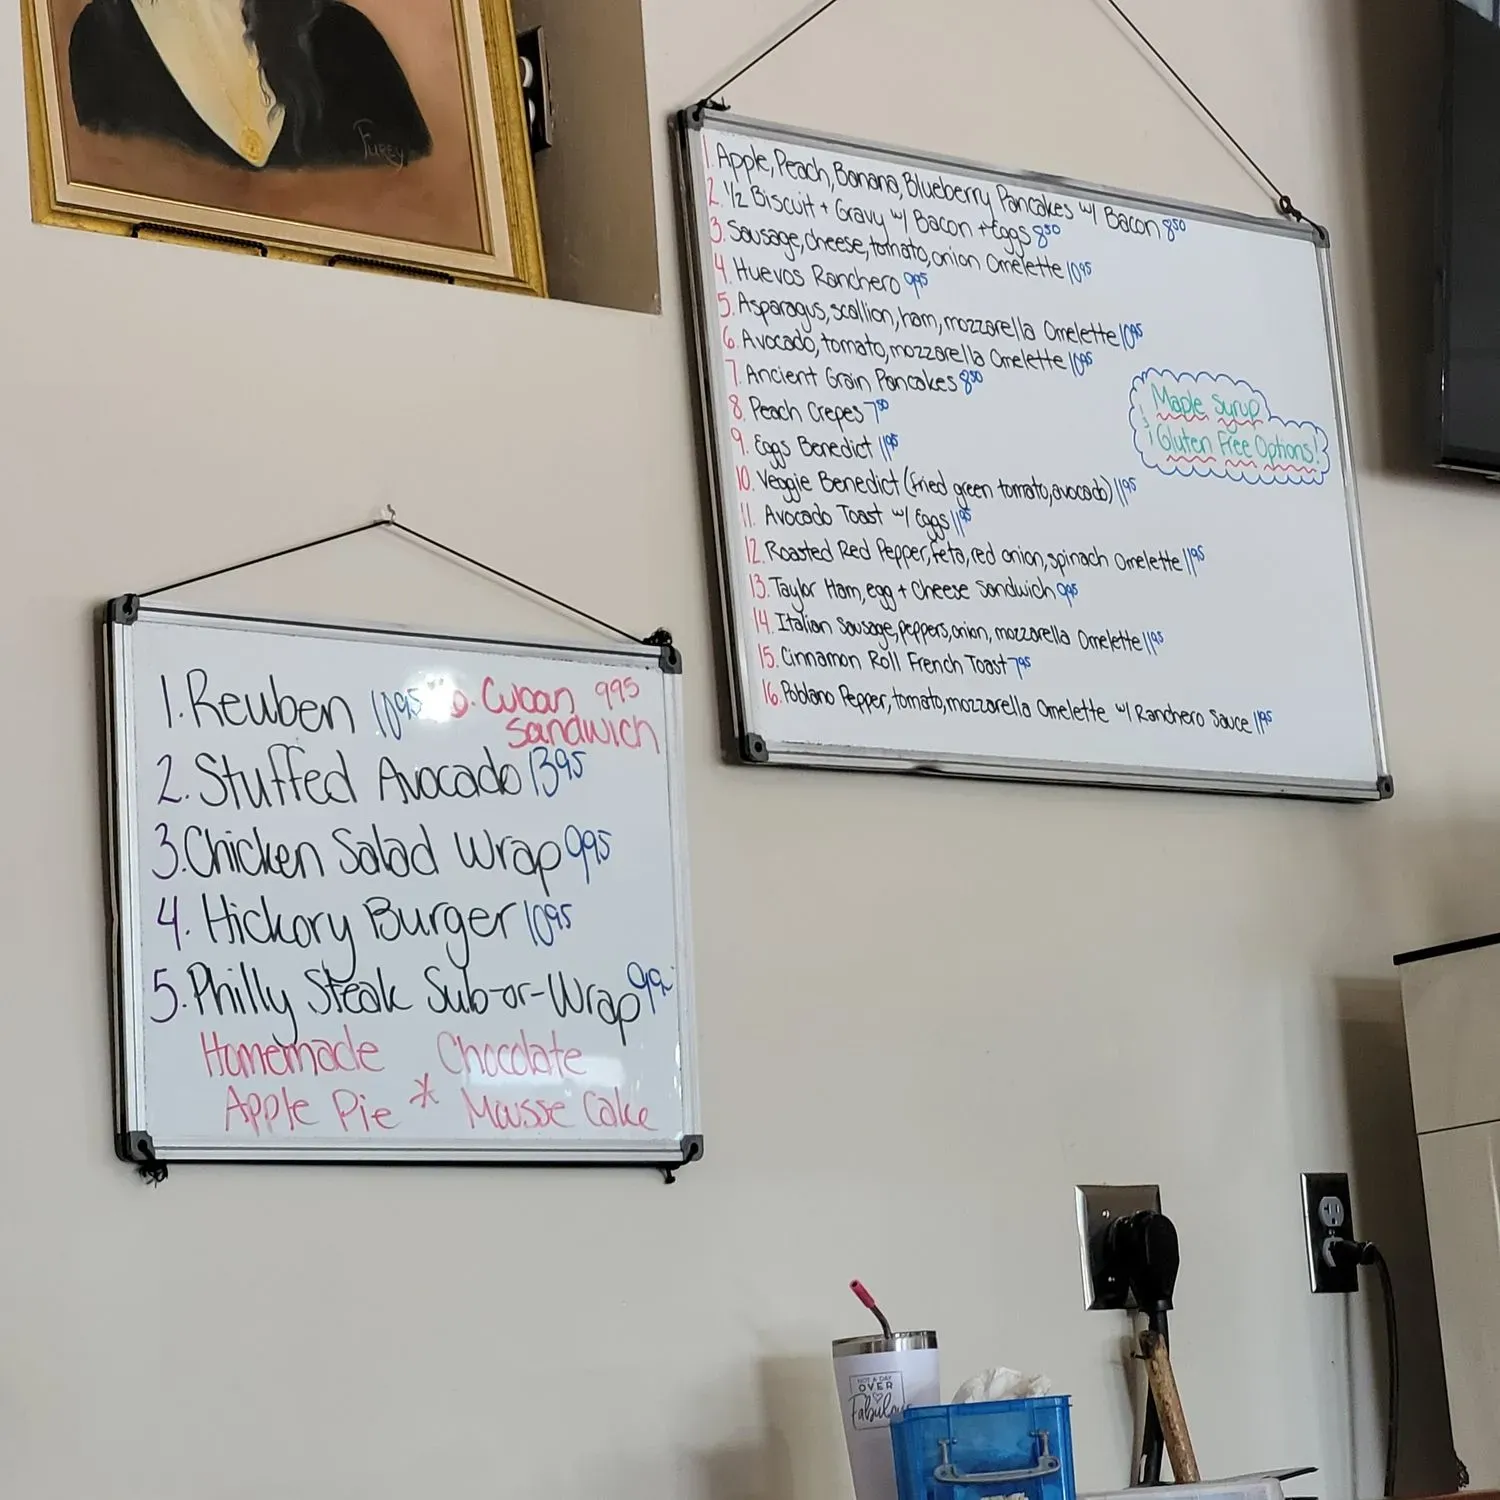 Furey
1. Apple, Peach, Banana, Blueberry Pancakes w/ Bacon 8⁵⁰
2. ½ Biscuit + Gravy w/ Bacon + Eggs 8⁵⁰
3. Sausage, cheese, tomato, onion Omelette 10⁹⁵
4. Huevos Ranchero 9⁹⁵
5. Asparagus, scallion, ham, mozzarella Omelette 10⁹⁵
6. Avocado, tomato, mozzarella Omelette 10⁹⁵
7. Ancient Grain Pancakes 8⁵⁰
8. Peach Crepes 7⁵⁰
9. Eggs Benedict 11⁹⁵
10. Veggie Benedict (fried green tomato, avocado) 11⁹⁵
11. Avocado Toast w/ Eggs 11⁹⁵
12. Roasted Red Pepper, feta, red onion, spinach Omelette 11⁹⁵
13. Taylor Ham, egg + cheese sandwich 9⁹⁵
14. Italian sausage, peppers, onion, mozzarella Omelette 11⁹⁵
15. Cinnamon Roll French Toast 7⁹⁵
16. Poblano Pepper, tomato, mozzarella Omelette w/ Ranchero Sauce 11⁹⁵
Maple Syrup
Gluten Free Options!
1. Reuben 10⁹⁵
Cuban 9⁹⁵
Sandwich
2. Stuffed Avocado 13⁹⁵
3. Chicken Salad Wrap 9⁹⁵
4. Hickory Burger 10⁹⁵
5. Philly Steak Sub-or-Wrap
Homemade Chocolate
Apple Pie * Mousse Cake
NOT A DAY
OVER
Fabulous